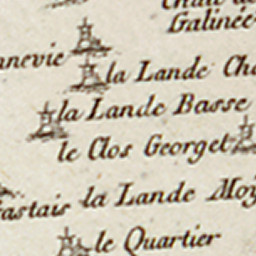 Galinée
nnevie
la Lande Cha
la Lande Basse
le Clos Georget
la Lande Moy
le Quartier